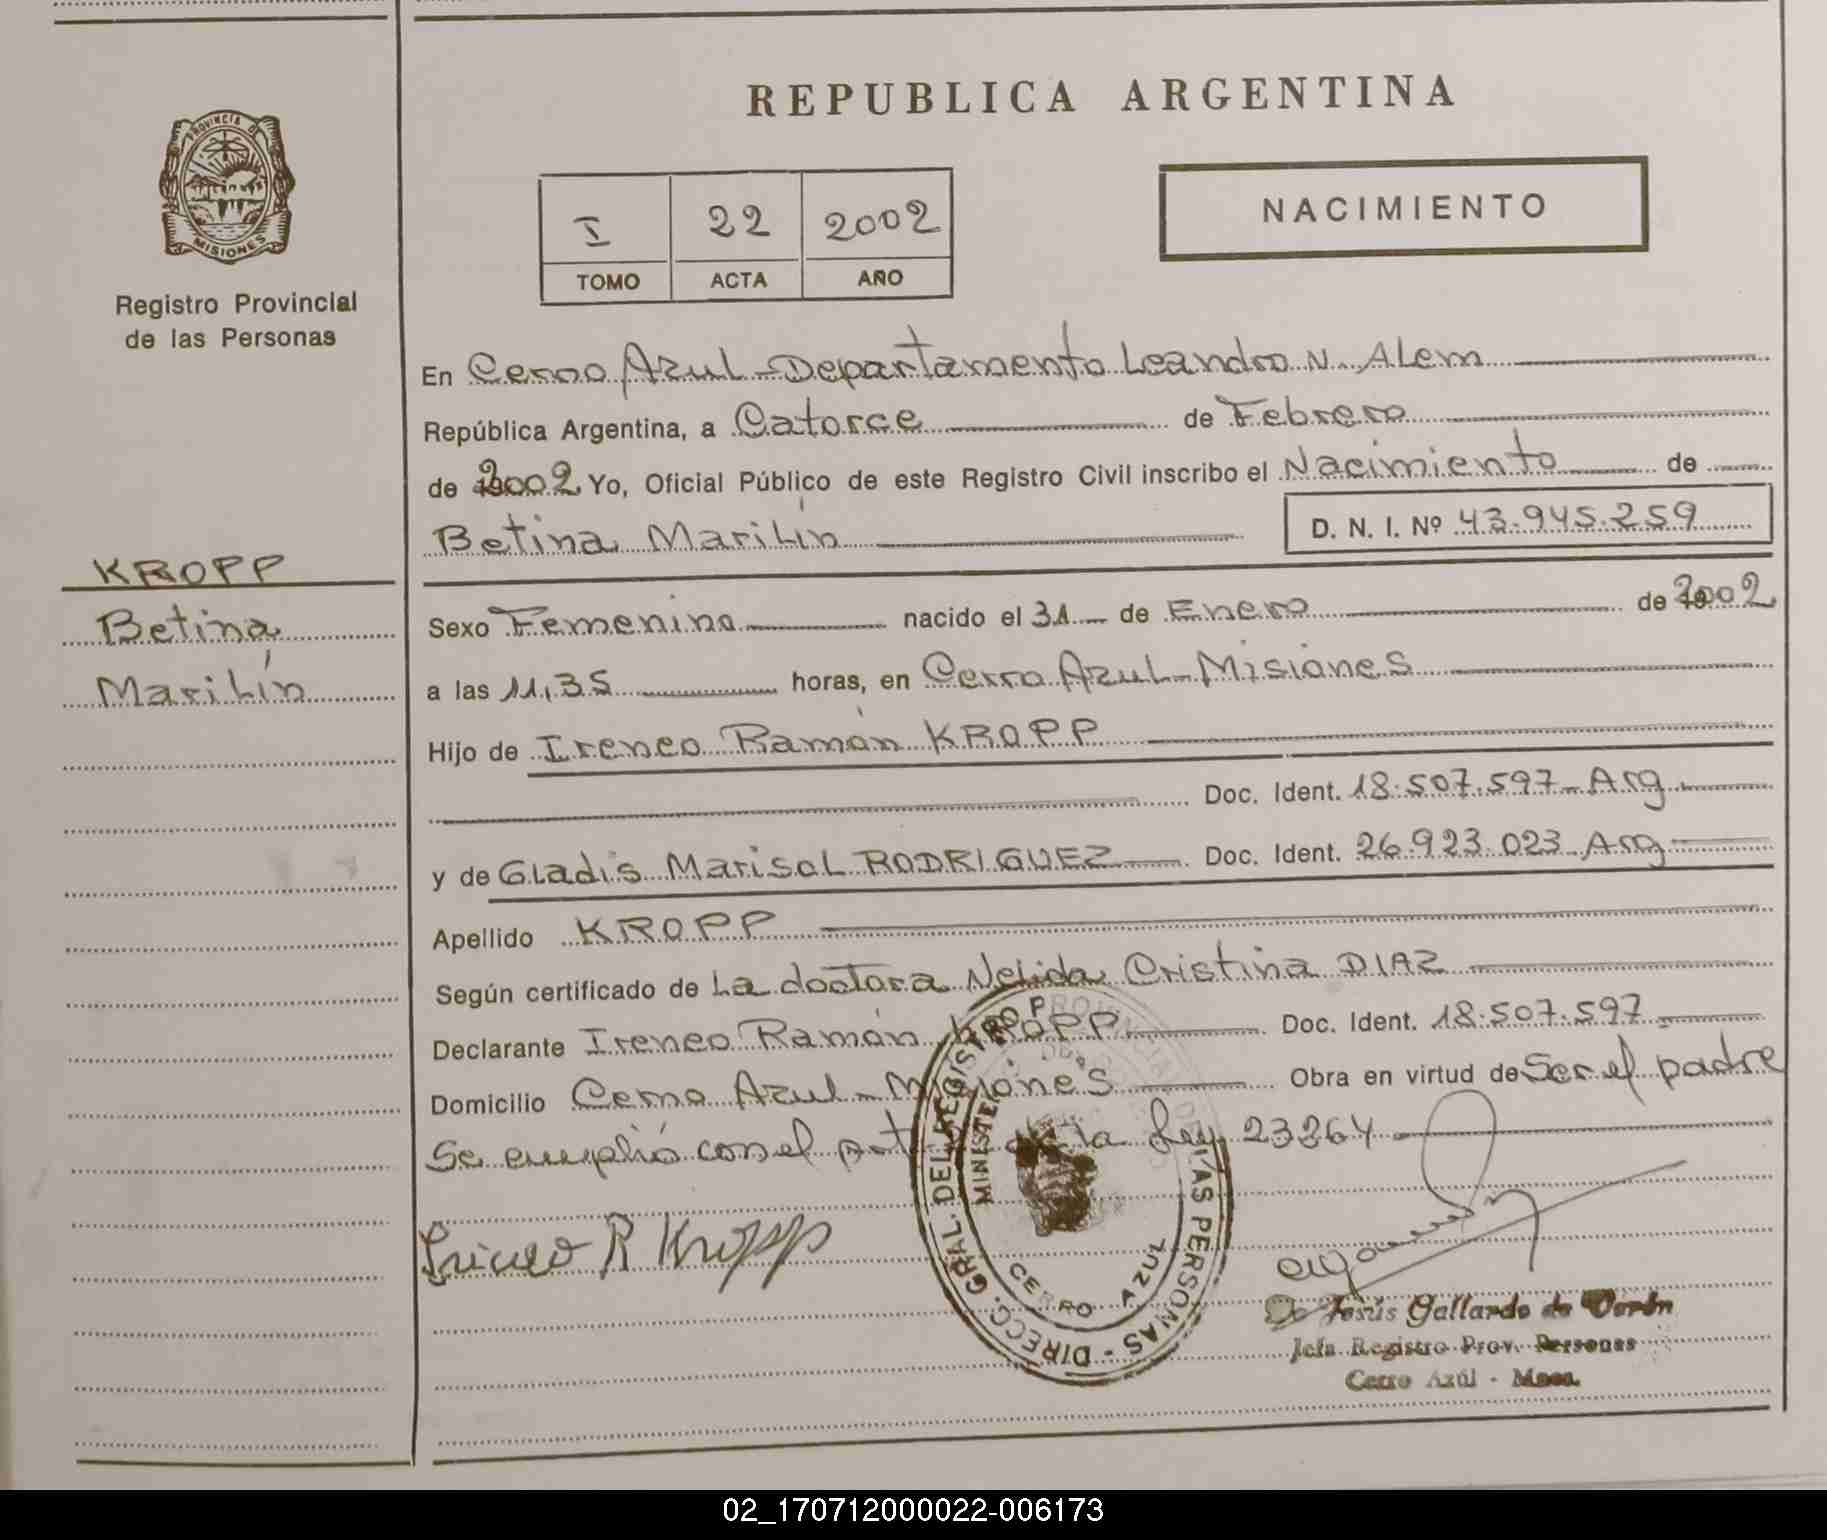 REPUBLICA ARGENTINA
PROVINCIA DE
MISIONES
Registro Provincial
de las Personas
I 22 2002
TOMO ACTA AÑO
NACIMIENTO
En Cerro Azul - Departamento Leandro N. Alem
República Argentina, a Catorce de Febrero
de 2002 Yo, Oficial Público de este Registro Civil inscribo el Nacimiento de
Betina Marilín D. N. I. Nº 43.945.259
KROPP
Betina
Marilín
Sexo Femenino nacido el 31 de Enero de 2002
a las 11,35 horas, en Cerro Azul - Misiones
Hijo de Ireneo Ramón KROPP
Doc. Ident. 18.507.597 - Arg
y de Gladis Marisol RODRIGUEZ Doc. Ident. 26.923.023 - Arg
Apellido KROPP
Según certificado de La doctora Nelida Cristina DIAZ
Declarante Ireneo Ramón KROPP Doc. Ident. 18.507.597
Domicilio Cerro Azul - Misiones Obra en virtud de Ser el padre
Se cumplió con el de la Ley 23264
Ireneo R Kropp
DIRECC. GRAL. DEL REGISTRO PROVINCIAL DE LAS PERSONAS -
CERRO AZUL
Jesús Gallardo de Verón
Jefa Registro Prov. Personas
Cerro Azúl - Mnes.
02_170712000022-006173